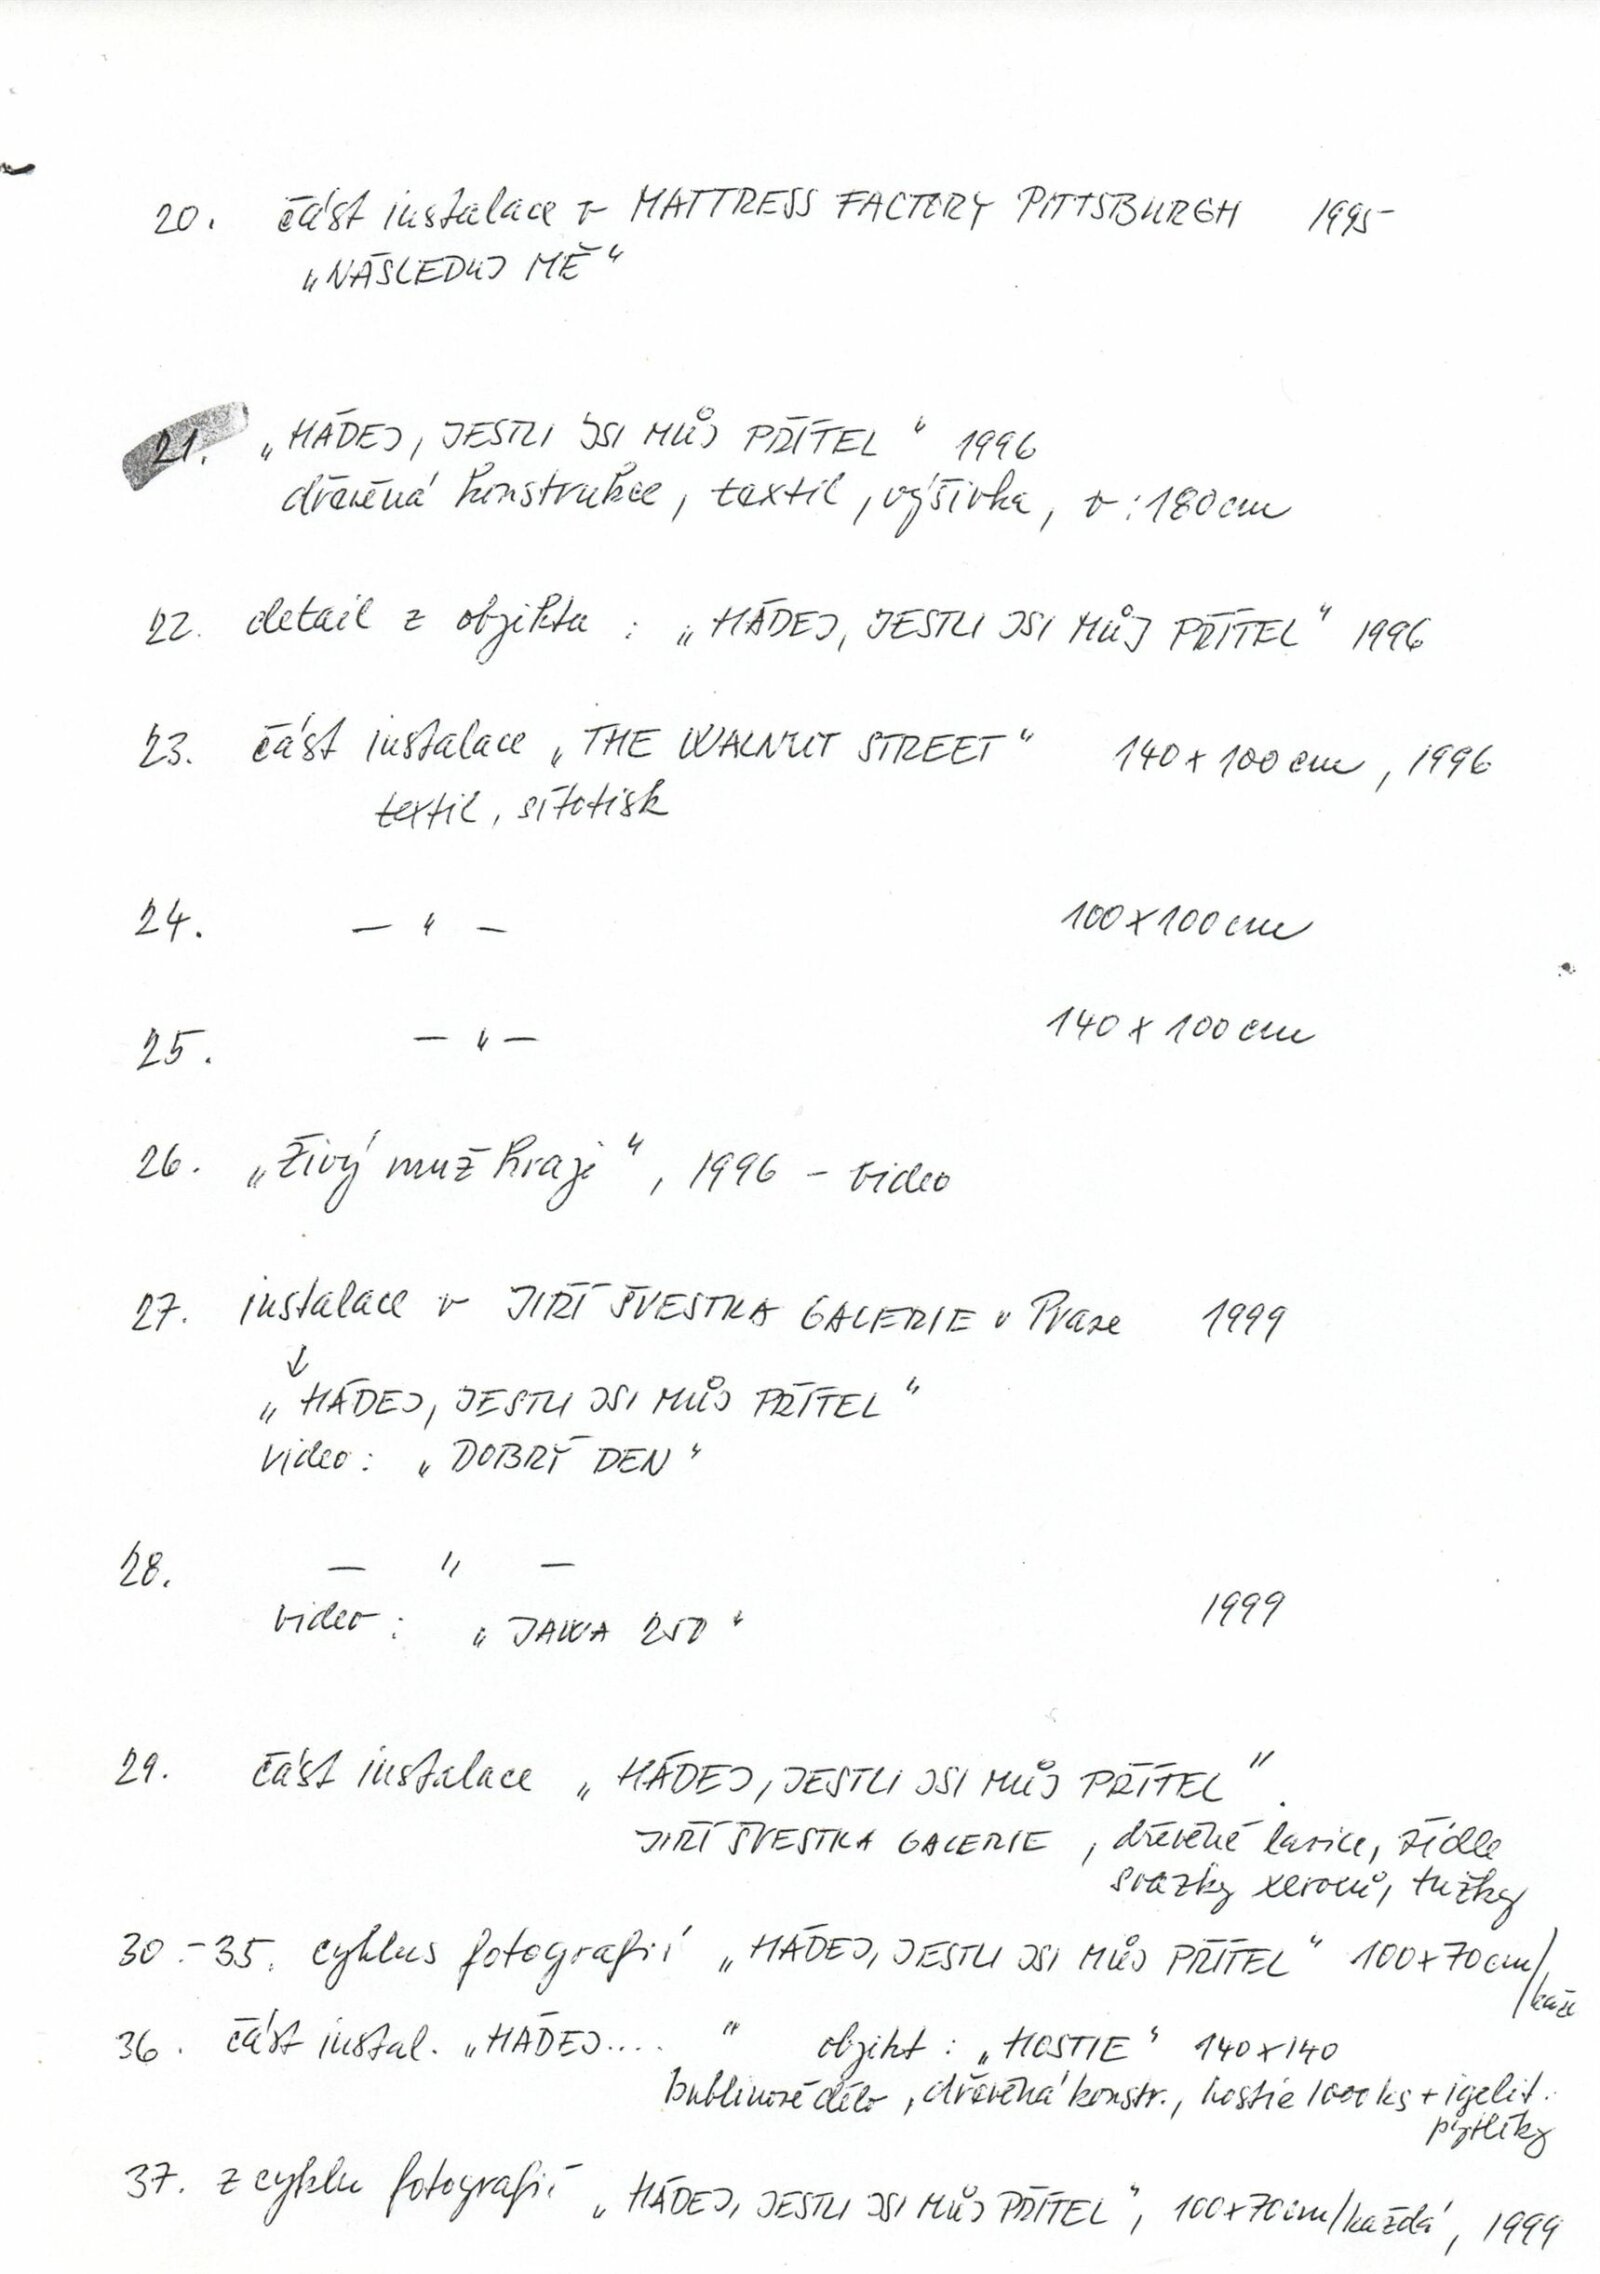 20. část instalace v MATTRESS FACTORY PITTSBURGH 1995
„NÁSLEDUJ MĚ“
21. „HÁDEJ, JESTLI JSI MŮJ PŘÍTEL“ 1996
dřevěná konstrukce, textil, výšivka, v: 180cm
22. detail z objektu : „HÁDEJ, JESTLI JSI MŮJ PŘÍTEL“ 1996
23. část instalace „THE WALNUT STREET“ 140 x 100 cm, 1996
textil, sítotisk
24. — „ — 100 x 100 cm
25. — „ — 140 x 100 cm
26. „Živý muž hraje“, 1996 – video
27. instalace v JIŘÍ ŠVESTKA GALERIE v Praze 1999
↓
„HÁDEJ, JESTLI JSI MŮJ PŘÍTEL“
video: „DOBRÝ DEN“
28. — „ —
video: „JAWA 250“ 1999
29. část instalace „HÁDEJ, JESTLI JSI MŮJ PŘÍTEL“.
JIŘÍ ŠVESTKA GALERIE, dřevěné lavice, židle
svazky xeroxů, tužky
30.–35. cyklus fotografií „HÁDEJ, JESTLI JSI MŮJ PŘÍTEL“ 100x70cm/
/kaž
36. část instal. „HÁDEJ....“ objekt : „HOSTIE“ 140x140
dělo, dřevěná konstr., hostie 1000 ks + igelit.
pytlíky
37. z cyklu fotografií „HÁDEJ, JESTLI JSI MŮJ PŘÍTEL“, 100x70cm/každá, 1999